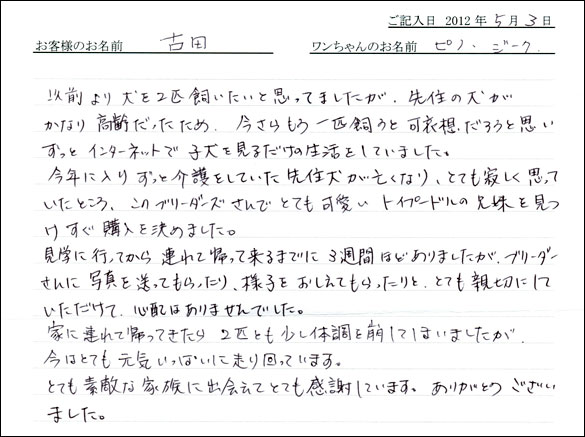 ご記入日 2012年5月3日
お客様のお名前 古田 ワンちゃんのお名前 ピノ・ジーク
以前より犬を2匹飼いたいと思ってましたが、先住の犬が
かなり高齢だったため、今さらもう一匹飼うと可哀想だろうと思い
ずっとインターネットで子犬を見るだけの生活をしていました。
今年に入りずっと介護をしていた先住犬が亡くなり、とても寂しく思って
いたところ、このブリーダーズさんでとても可愛いトイプードルの兄妹を見つ
けすぐ購入を決めました。
見学に行ってから連れて帰って来るまでに3週間ほどありましたが、ブリーダー
さんに写真を送ってもらったり、様子をおしえてもらったりと、とても親切にして
いただけて、心配はありませんでした。
家に連れて帰ってきたら2匹とも少し体調を崩してしまいましたが、
今はとても元気いっぱいに走り回っています。
とても素敵な家族に出会えてとても感謝しています。ありがとうござい
ました。